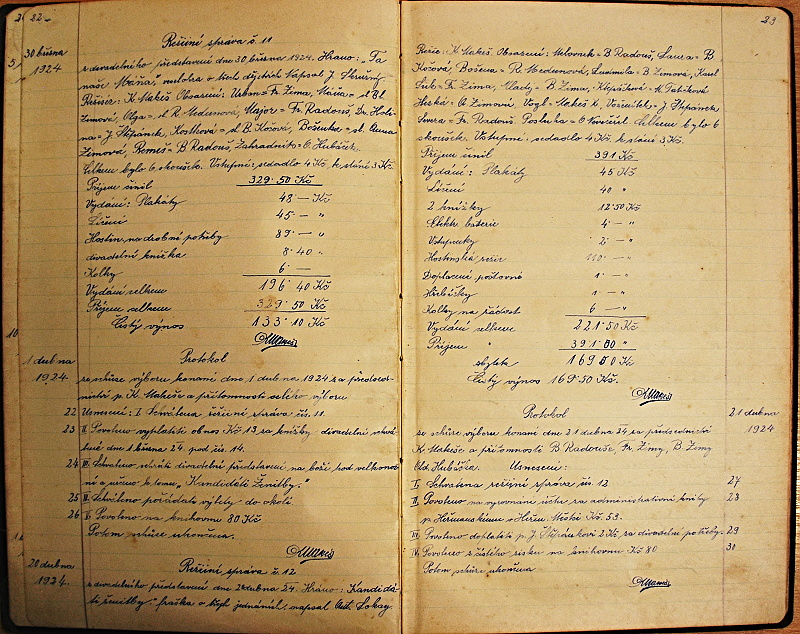 22
30 března
1924
Režijní správa č. 11
z divadelního představení dne 30 března 1924. Hráno: „Ta
naše Máňa" veselohra o třech dějstvích napsal J. Skružný
Režisér: K. Makeš Obsazení: Urban = Fr. Zima, Máňa = sl. Bl.
Zimová, Olga = sl. R. Medunová, Major = Fr. Radouš, Dr. Holi-
na = J. Štěpánek, Kostková = sl. B. Kočová, Boženka = sl. Anna
Zimová, Romeš = B. Radouš Zahradník = O. Hubáček.
Celkem bylo 6 zkoušek. Vstupné: sedadlo 4 Kč k stání 3 Kč
Příjem činil 329·50 Kč
Vydání: Plakáty 48·— Kč
Líčení 45·— "
Hostin. na drobné potřeby 89·— "
divadelní knížka 8·40 "
Kolky 6·—
Vydání celkem 196·40 Kč
Příjem celkem 329·50 Kč
Čistý výnos 133·10 Kč
1 dubna
1924
Protokol
ze schůze výboru konané dne 1 dubna 1924 za předsed-
nictví p. K. Makeše a přítomnosti celého výboru
22 Usnesení: I Schválena režijní správa čís. 11.
23 II Povoleno vyplatiti obnos Kč 13 za knížky divadelní schvá-
lené dne 1 března 24. pod čís. 14.
24 III. Schváleno sehráti divadelní představení na boží hod velkonoč
ní a určeno k tomu „Kandidáti ženitby."
25 IV. Schváleno pořádati výlety do okolí
26 V. Povoleno na knihovnu 80 Kč
Potom schůze ukončena.
20 dubna
1924.
Režijní správa č. 12
z divadelního představení dne 20 dubna 24. Hráno: Kandidá-
ti ženitby." fraška o třech jednáních, napsal Ant. Lokay.
23
Režie: K. Makeš. Obsazení: Melovnek = B Radouš, Laura = B.
Kočová, Božena = R. Medunová, Ludmila = B. Zimová, Karel
= Fr. Zima, = B. Zima,
= O. Zimová Vogl = Makeš K., = J. Štěpánek
= Fr. Radouš Posluha = O Celkem bylo 6
zkoušek. Vstupné: sedadlo 4 Kč. k stání 3 Kč.
Příjem činil 391 Kč
Vydání: Plakáty 45 Kč
Líčení 40 "
2 knížky 12·50 Kč
Elektr. baterie 4·— "
Vstupenky 2·— "
Hostinská režie 110·— "
Doplacené poštovné 1·— "
Hřebíčky 1·— "
Kolky na žádost 6·— "
Vydání celkem 221·50 Kč
Příjem " 391·00 "
zbytek 169·50 Kč
Čistý výnos 169·50 Kč.
Protokol
21 dubna
1924
ze schůze výboru konané dne 21 dubna 24 za předsednictví
K Makeše a přítomnosti B Radouše, Fr. Zimy, B. Zimy
Old. Hubáčka. Usnesení:
I. Schválena režijní správa čís. 12 27
II. Povoleno na vyrovnání účtu za administrativní knihy 28
p. Heřmanskému v Heřm. Městci Kč. 53.
III. Povoleno doplatiti p. J. Štěpánkovi 2 Kč za divadelní potřeby. 29
IV. Povoleno z čistého zisku na knihovnu Kč 80 30
Potom schůze ukončena